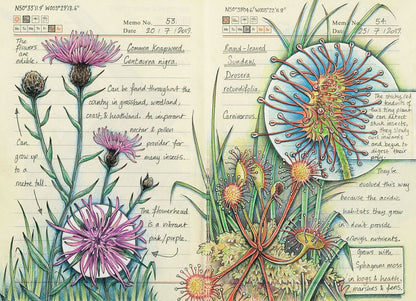 N50°33'11.9" W003°29'13.6"
Memo No. 53.
Date 20 / 7 / 2019.
The flowers
are
edible.
Common Knapweed.
Centaurea nigra.
Can be found throughout the
country in grassland, woodland,
coast, & heathland. An important
nectar & pollen
provider for
many insects.
Can
grow up
to a
metre tall.
The flowerhead
is a vibrant
pink/purple.
Memo No. 54.
Date 25 / 7 / 2019.
Round-leaved
Sundew
Drosera
rotundifolia.
Carnivorous.
The sticky red
tendrils of
this tiny plant
can detect
stuck insects,
they slowly
curl inwards
and begin to
digest their
prey.
They be
evolved this way
because the acidic
habitats they grow
in don't provide
enough nutrients.
Grows with
Sphagnum moss
in bogs & heath,
marshes & fens.